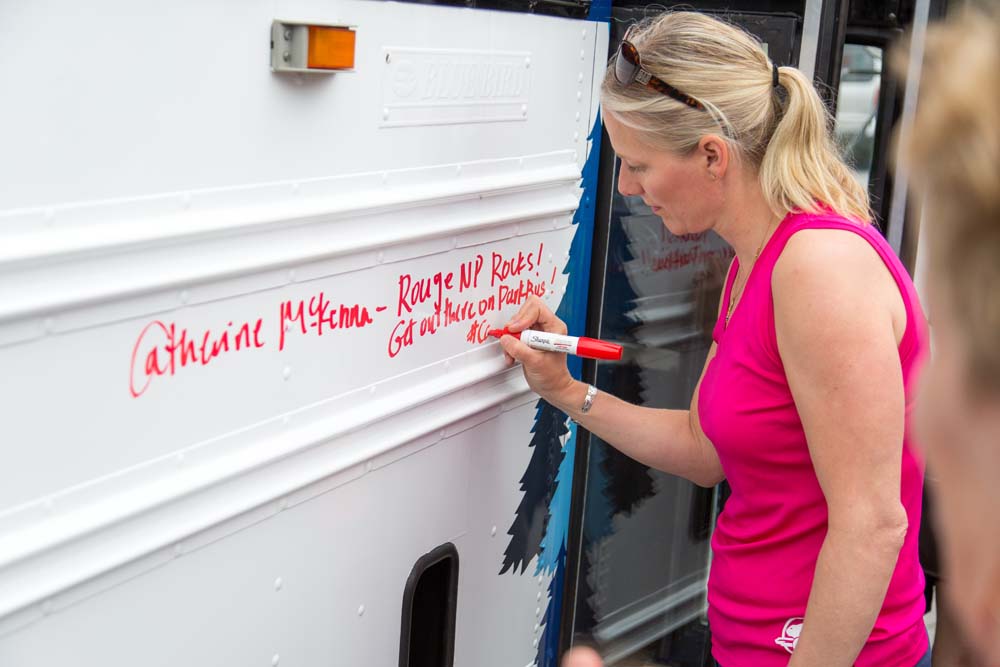 BLUE BIRD
Catherine McKenna - Rouge NP Rocks!
Get out there on Parkbus!
#Co
Sharpie